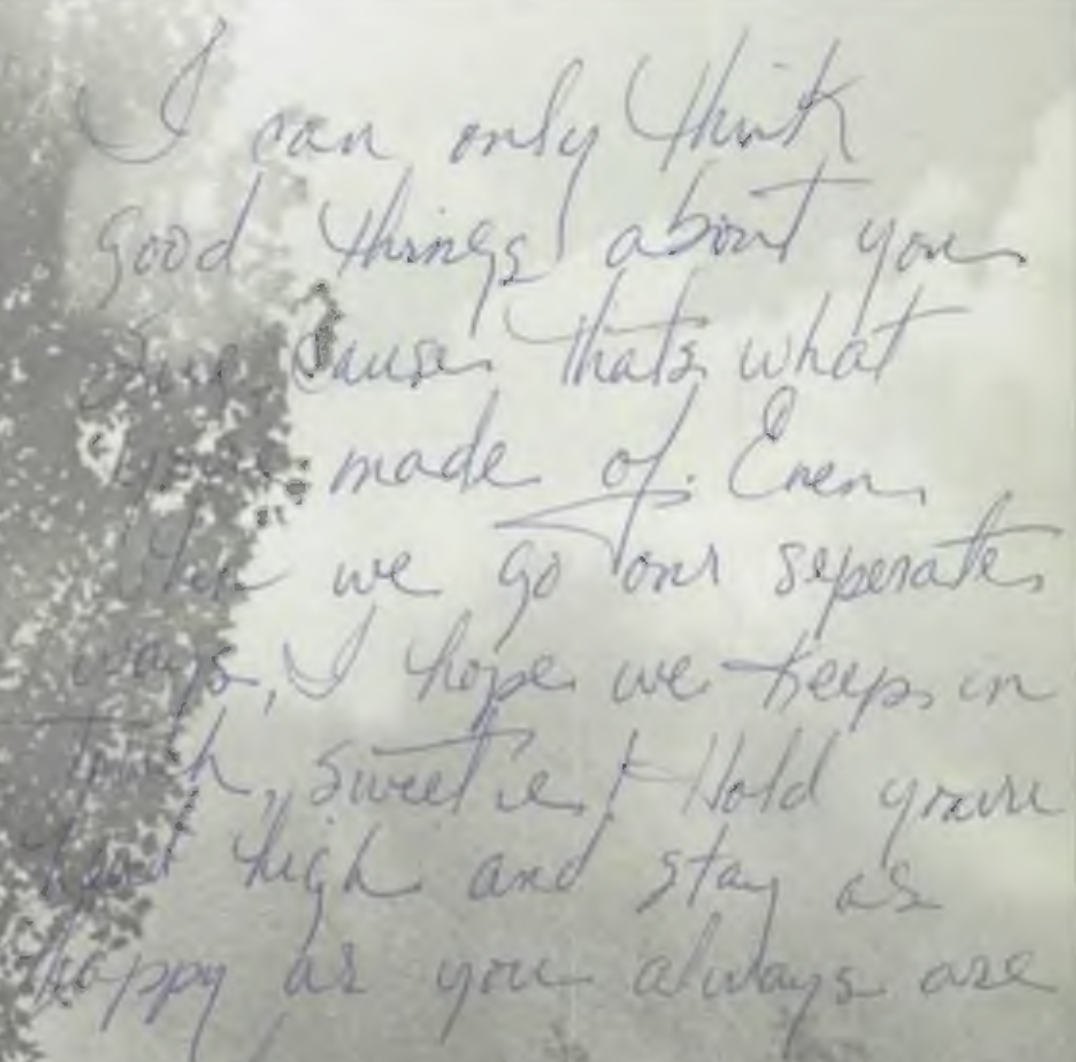 I can only think
good things about you
cause thats what
made of. Even
when we go our seperate
ways, I hope we keep in
touch, sweetie! Hold your
head high and stay as
happy as you always are